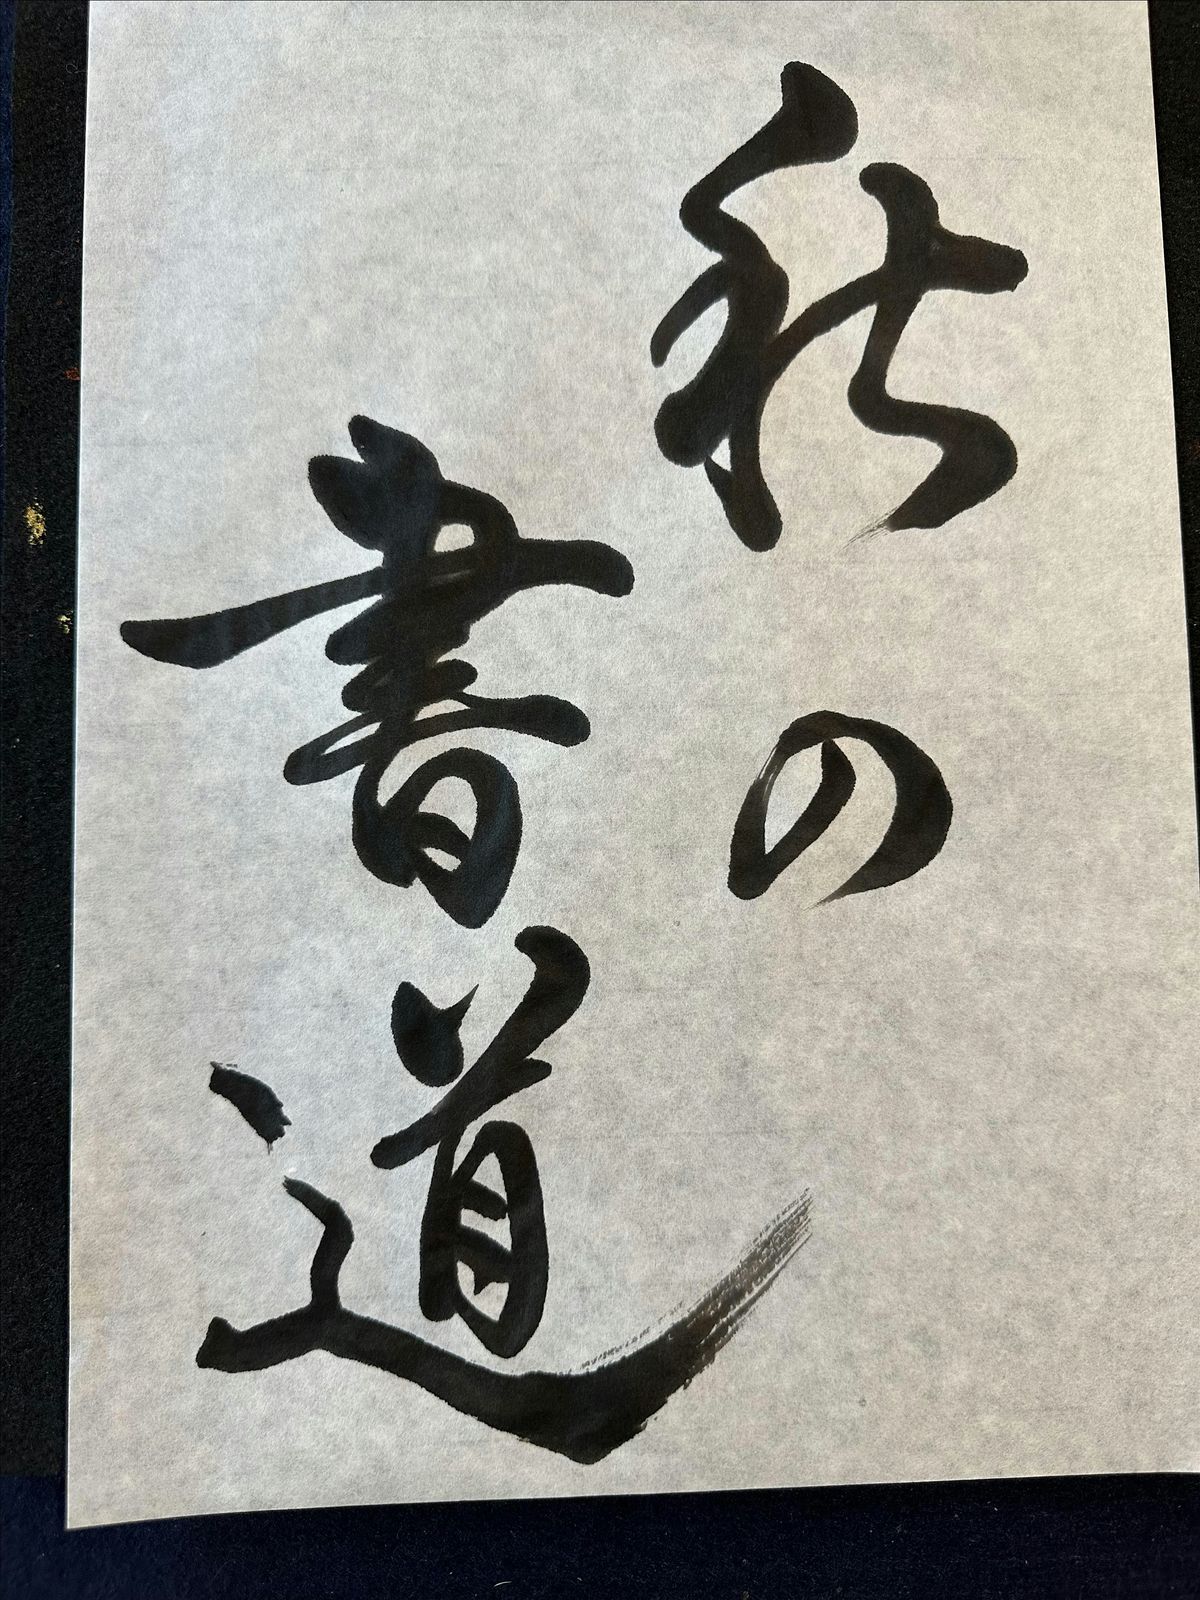 秋の
書道